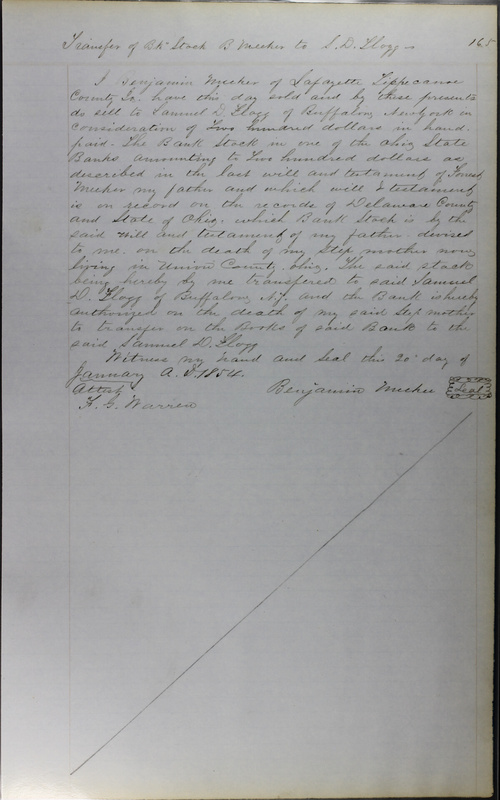 Transfer of Bk Stock B Meeker to S. D. Flogg
165
I Benjamin Meeker of Lafayette Tippecanoe
County Ia. have this day sold and by these presents
do sell to Samuel D. Flogg of Buffalow New york in
consideration of Two hundred dollars in hand
paid. The Bank Stock in one of the Ohio State
Banks amounting to Two hundred dollars as
described in the last will and testament of Forest
Meeker my father and which will & testament
is on record on the records of Delaware County
and State of Ohio. which Bank Stock is by the
said will and testament of my father devised
to me. on the death of my Step mother now
living in Union County Ohio. The said stock
being hereby by me transfered to said Samuel
D. Flogg of Buffalow, N.Y. and the Bank is hereby
authorized on the death of my said Step mother
to transfer on the Books of said Bank to the
said Samuel D. Flogg
Witness my hand and Seal this 20th day of
January A.D. 1854.
Attest Benjamin Meeker Seal
F. G. Warren